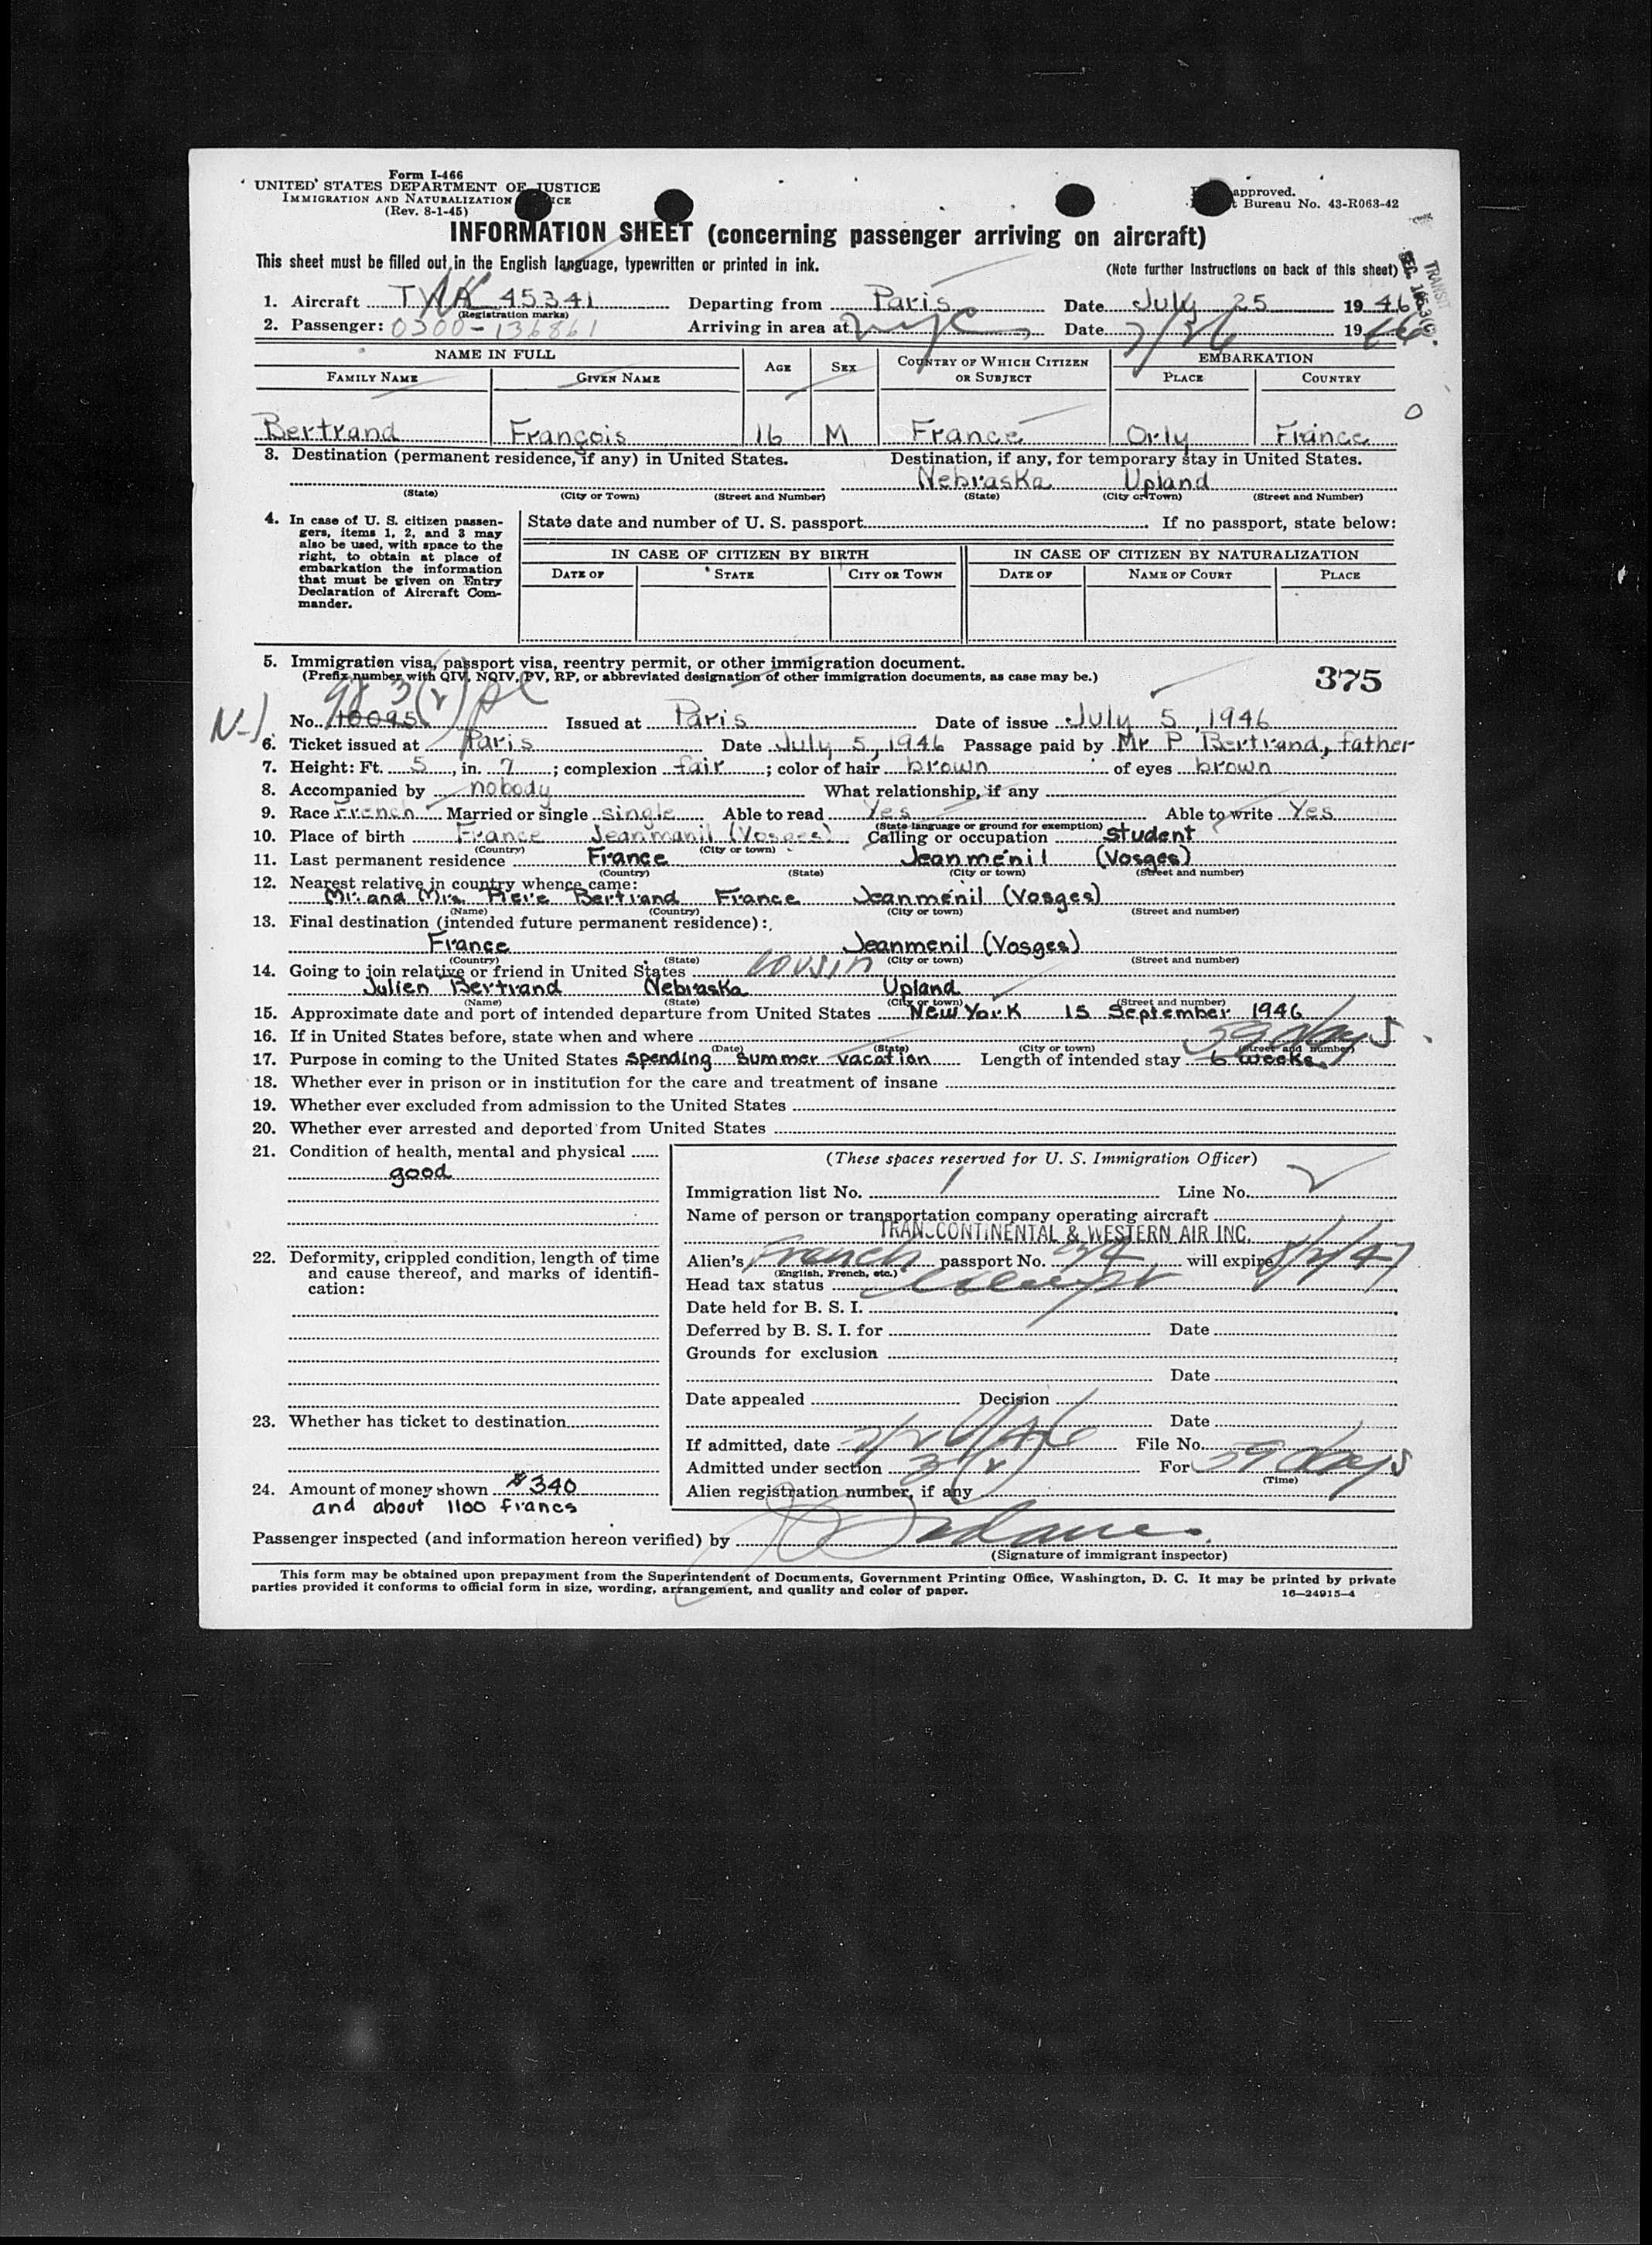 Form I-466
UNITED STATES DEPARTMENT OF JUSTICE
IMMIGRATION AND NATURALIZATION
(Rev. 8-1-45)
approved.
Bureau No. 43-R063-42
INFORMATION SHEET (concerning passenger arriving on aircraft)
This sheet must be filled out in the English language, typewritten or printed in ink.
(Note further instructions on back of this sheet)
TRANSIT
1. Aircraft TWA 45341 Departing from Paris Date July 25 1946
(Registration marks)
2. Passenger: 0300-136861 Arriving in area at nyc Date 7/26 1946
NAME IN FULL AGE SEX COUNTRY OF WHICH CITIZEN OR SUBJECT EMBARKATION
FAMILY NAME GIVEN NAME PLACE COUNTRY
Bertrand François 16 M France Orly France
3. Destination (permanent residence, if any) in United States. Destination, if any, for temporary stay in United States.
Nebraska Upland
(State) (City or Town) (Street and Number) (State) (City or Town) (Street and Number)
4. In case of U. S. citizen passengers, items 1, 2, and 3 may also be used, with space to the right, to obtain at place of embarkation the information that must be given on Entry Declaration of Aircraft Commander.
State date and number of U. S. passport If no passport, state below:
IN CASE OF CITIZEN BY BIRTH IN CASE OF CITIZEN BY NATURALIZATION
DATE OF STATE CITY OR TOWN DATE OF NAME OF COURT PLACE
5. Immigration visa, passport visa, reentry permit, or other immigration document.
(Prefix number with QIV, NQIV, PV, RP, or abbreviated designation of other immigration documents, as case may be.)
375
No. 10095 Issued at Paris Date of issue July 5, 1946
6. Ticket issued at Paris Date July 5, 1946 Passage paid by Mr P Bertrand, father
7. Height: Ft. 5, in. 7; complexion fair; color of hair brown of eyes brown
8. Accompanied by nobody What relationship, if any
9. Race French Married or single single Able to read Yes Able to write Yes
(State language or ground for exemption)
10. Place of birth France Jeanmanil (Vosges) Calling or occupation student
(Country) (City or town)
11. Last permanent residence France Jeanménil (Vosges)
(Country) (State) (City or town) (Street and number)
12. Nearest relative in country whence came:
Mr. and Mrs. Piere Bertrand France Jeanménil (Vosges)
(Name) (Country) (City or town) (Street and number)
13. Final destination (intended future permanent residence):
France Jeanmenil (Vosges)
(Country) (State) (City or town) (Street and number)
14. Going to join relative or friend in United States cousin
Julien Bertrand Nebraska Upland
(Name) (State) (City or town) (Street and number)
15. Approximate date and port of intended departure from United States New York 15 September 1946
16. If in United States before, state when and where
59 days
(Date) (State) (City or town) (Street and number)
17. Purpose in coming to the United States spending summer vacation Length of intended stay 6 weeks
18. Whether ever in prison or in institution for the care and treatment of insane
19. Whether ever excluded from admission to the United States
20. Whether ever arrested and deported from United States
21. Condition of health, mental and physical
good
22. Deformity, crippled condition, length of time and cause thereof, and marks of identification:
23. Whether has ticket to destination
24. Amount of money shown $340
and about 1100 francs
(These spaces reserved for U. S. Immigration Officer)
Immigration list No. 1 Line No. 2
Name of person or transportation company operating aircraft
TRANSCONTINENTAL & WESTERN AIR INC.
Alien's French passport No. will expire 8/2/47
(English, French, etc.)
Head tax status exempt
Date held for B. S. I.
Deferred by B. S. I. for Date
Grounds for exclusion
Date
Date appealed Decision
Date
If admitted, date 7/26/46 File No.
Admitted under section 3(2) For 59 days
(Time)
Alien registration number, if any
Passenger inspected (and information hereon verified) by
(Signature of immigrant inspector)
This form may be obtained upon prepayment from the Superintendent of Documents, Government Printing Office, Washington, D. C. It may be printed by private
parties provided it conforms to official form in size, wording, arrangement, and quality and color of paper.
16—24915-4